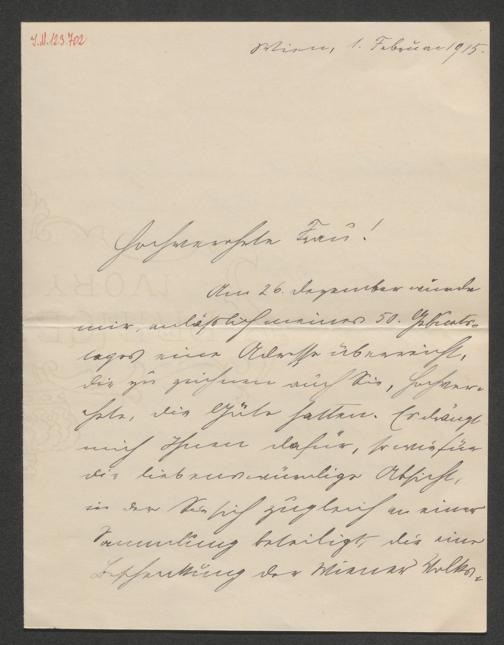 I.N. 123.702
Wien, 1. Februar 1915.
Hochverehrte Frau!
Am 26. Dezember wurde
mir, anläßlich meines 50. Geburts-
tages eine Adresse überreicht,
die zu zeichnen auch Sie, Hochver-
ehrte, die Güte hatten. Es drängt
mich Ihnen dafür, sowie für
die liebenswürdige Absicht,
in der Sie sich zugleich an einer
Sammlung beteiligt, die eine
Beschenkung der Wiener Volks-
IVORY